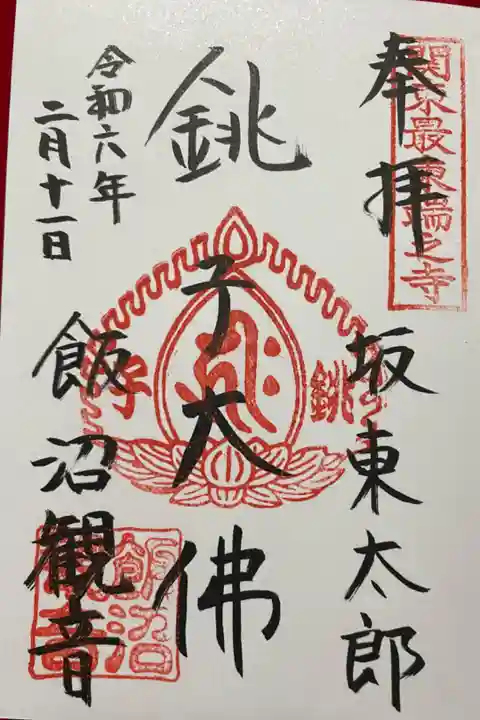 関東最東端之寺
奉拝
坂東太郎
銚子大佛
銚子
令和六年
二月十一日
飯沼観音
飯沼観音